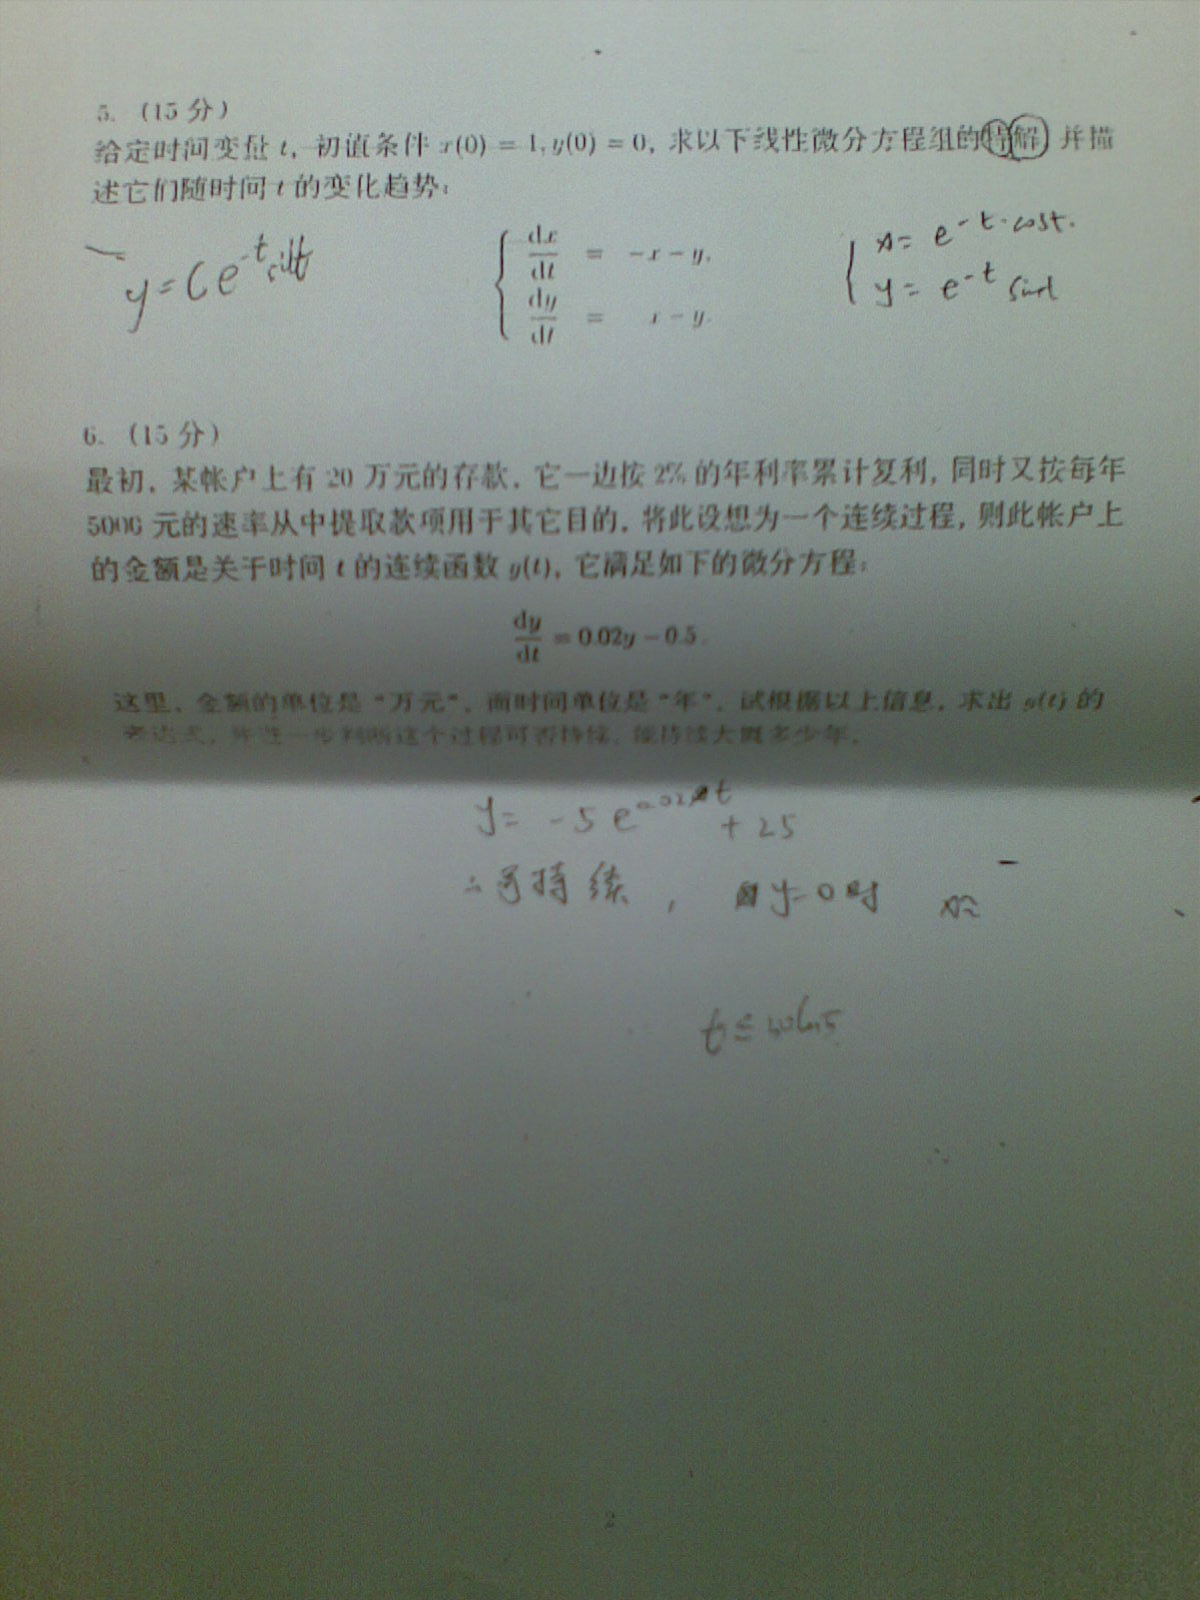 5. (15 分)
给定时间变量 t, 初值条件 x(0) = 1, y(0) = 0, 求以下线性微分方程组的特解 并描
述它们随时间 t 的变化趋势:
y = Ce^{-t} sint
dx/dt = -x - y,
dy/dt = x - y.
x = e^{-t}·cost.
y = e^{-t} sint
6. (15 分)
最初, 某帐户上有 20 万元的存款, 它一边按 2% 的年利率累计复利, 同时又按每年
5000 元的速率从中提取款项用于其它目的, 将此设想为一个连续过程, 则此帐户上
的金额是关于时间 t 的连续函数 y(t), 它满足如下的微分方程:
dy/dt = 0.02y - 0.5.
这里, 金额的单位是“万元”, 而时间单位是“年”, 试根据以上信息, 求出 y(t) 的
表达式, 并进一步判断这个过程可否持续, 能持续大概多少年.
y = -5 e^{0.02t} + 25
∴ 持续, y=0时
2